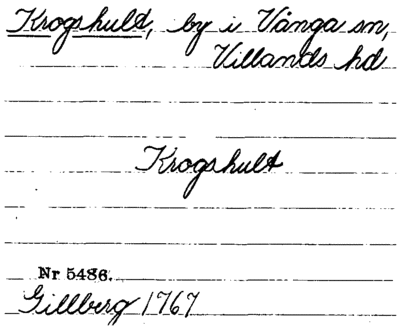 Krogshult, by i Vånga sn,
Villands hd
Krogshult
Nr 5486.
Gillberg 1767